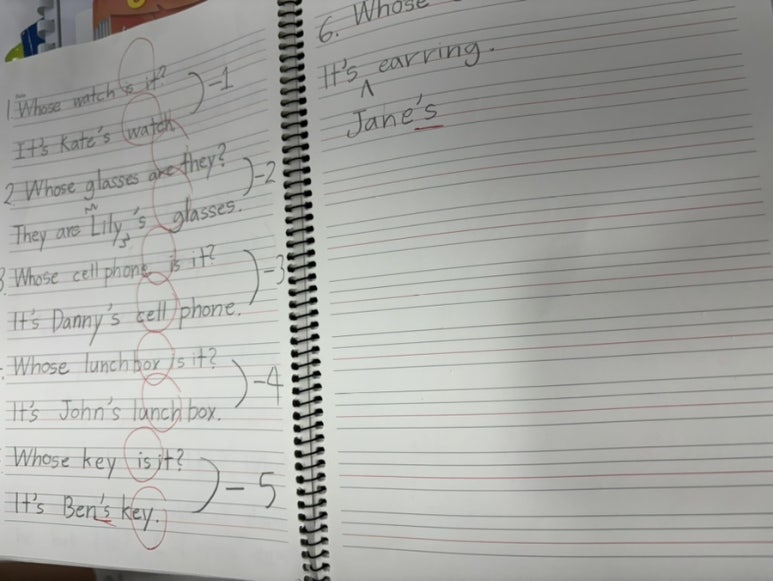 1. Whose watch is it?
It's Kate's watch
)-1
2. Whose glasses are they?
They are Lily's glasses.
)-2
3. Whose cell phone is it?
It's Danny's cell phone.
)-3
Whose lunch box is it?
It's John's lunch box.
)-4
Whose key is it?
It's Ben's key.
)-5
6. Whose
It's earring.
Jane's